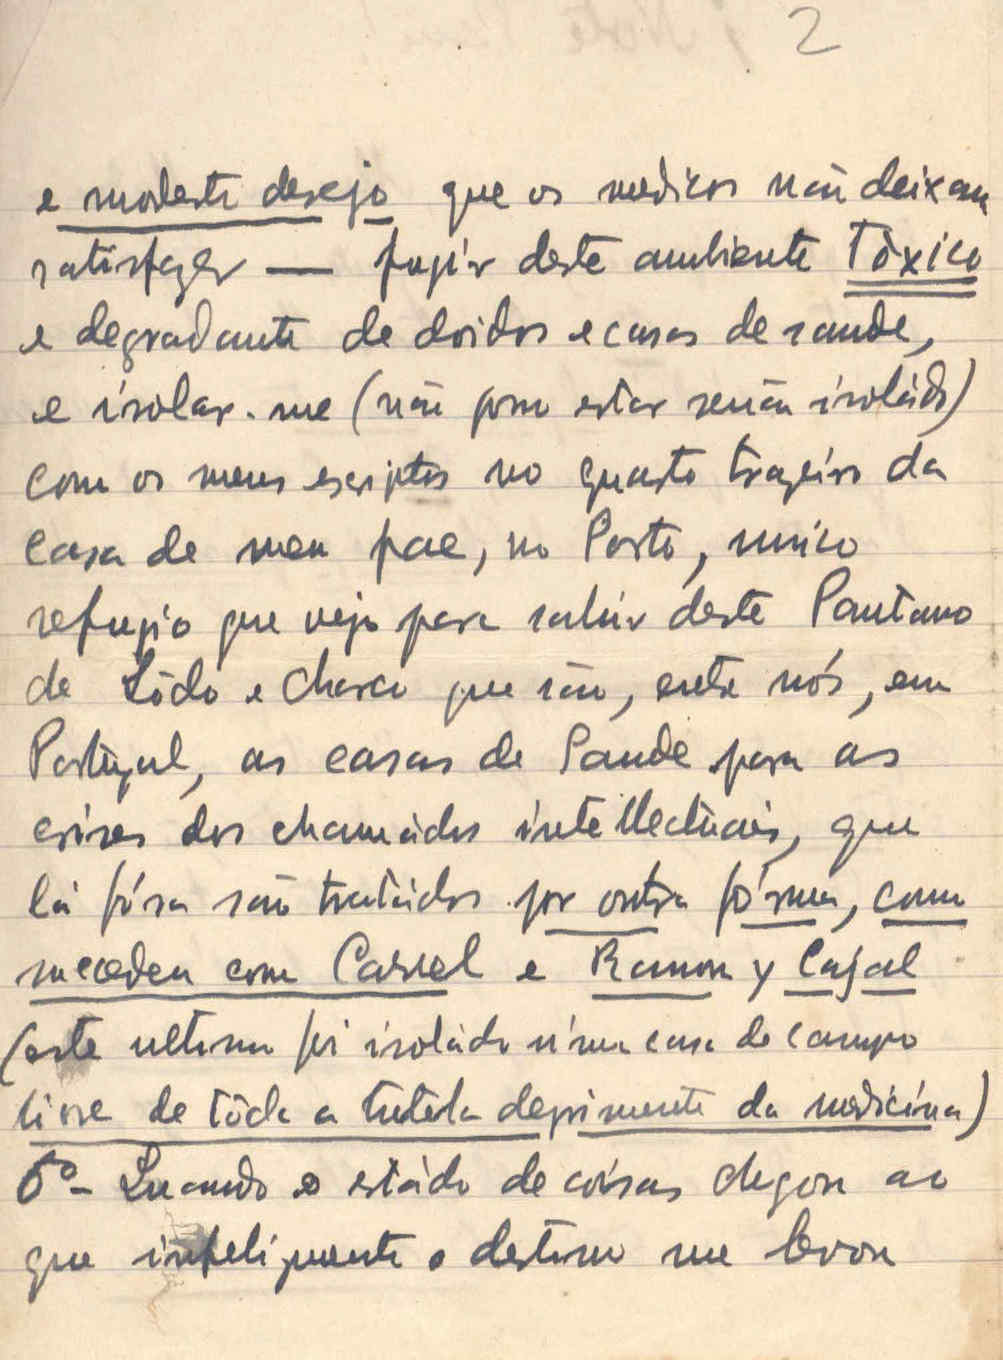 2
e modesto desejo que os medicos não deixam
satisfazer — fugir deste ambiente Tóxico
e degradante de doidos e casas de saude,
e isolar-me (não posso estar senão isoládo)
com os meus escriptos no quarto trazeiro da
casa de meu pae, no Porto, unico
refugio que vejo para sahir deste Pantano
de Lôdo e charco que são, entre nós, em
Portugal, as casas de Saude para as
crises dos chamádos intellectuais, que
lá fóra são tratádos por outra fórma, como
succedeu com Carrel e Ramon y Cajal
(este ultimo foi isoládo n'uma casa de campo
livre de tôda a tutela deprimente da medicina)
6º - Quando o estádo de coisas chegou ao
que infelizmente o destino me levou